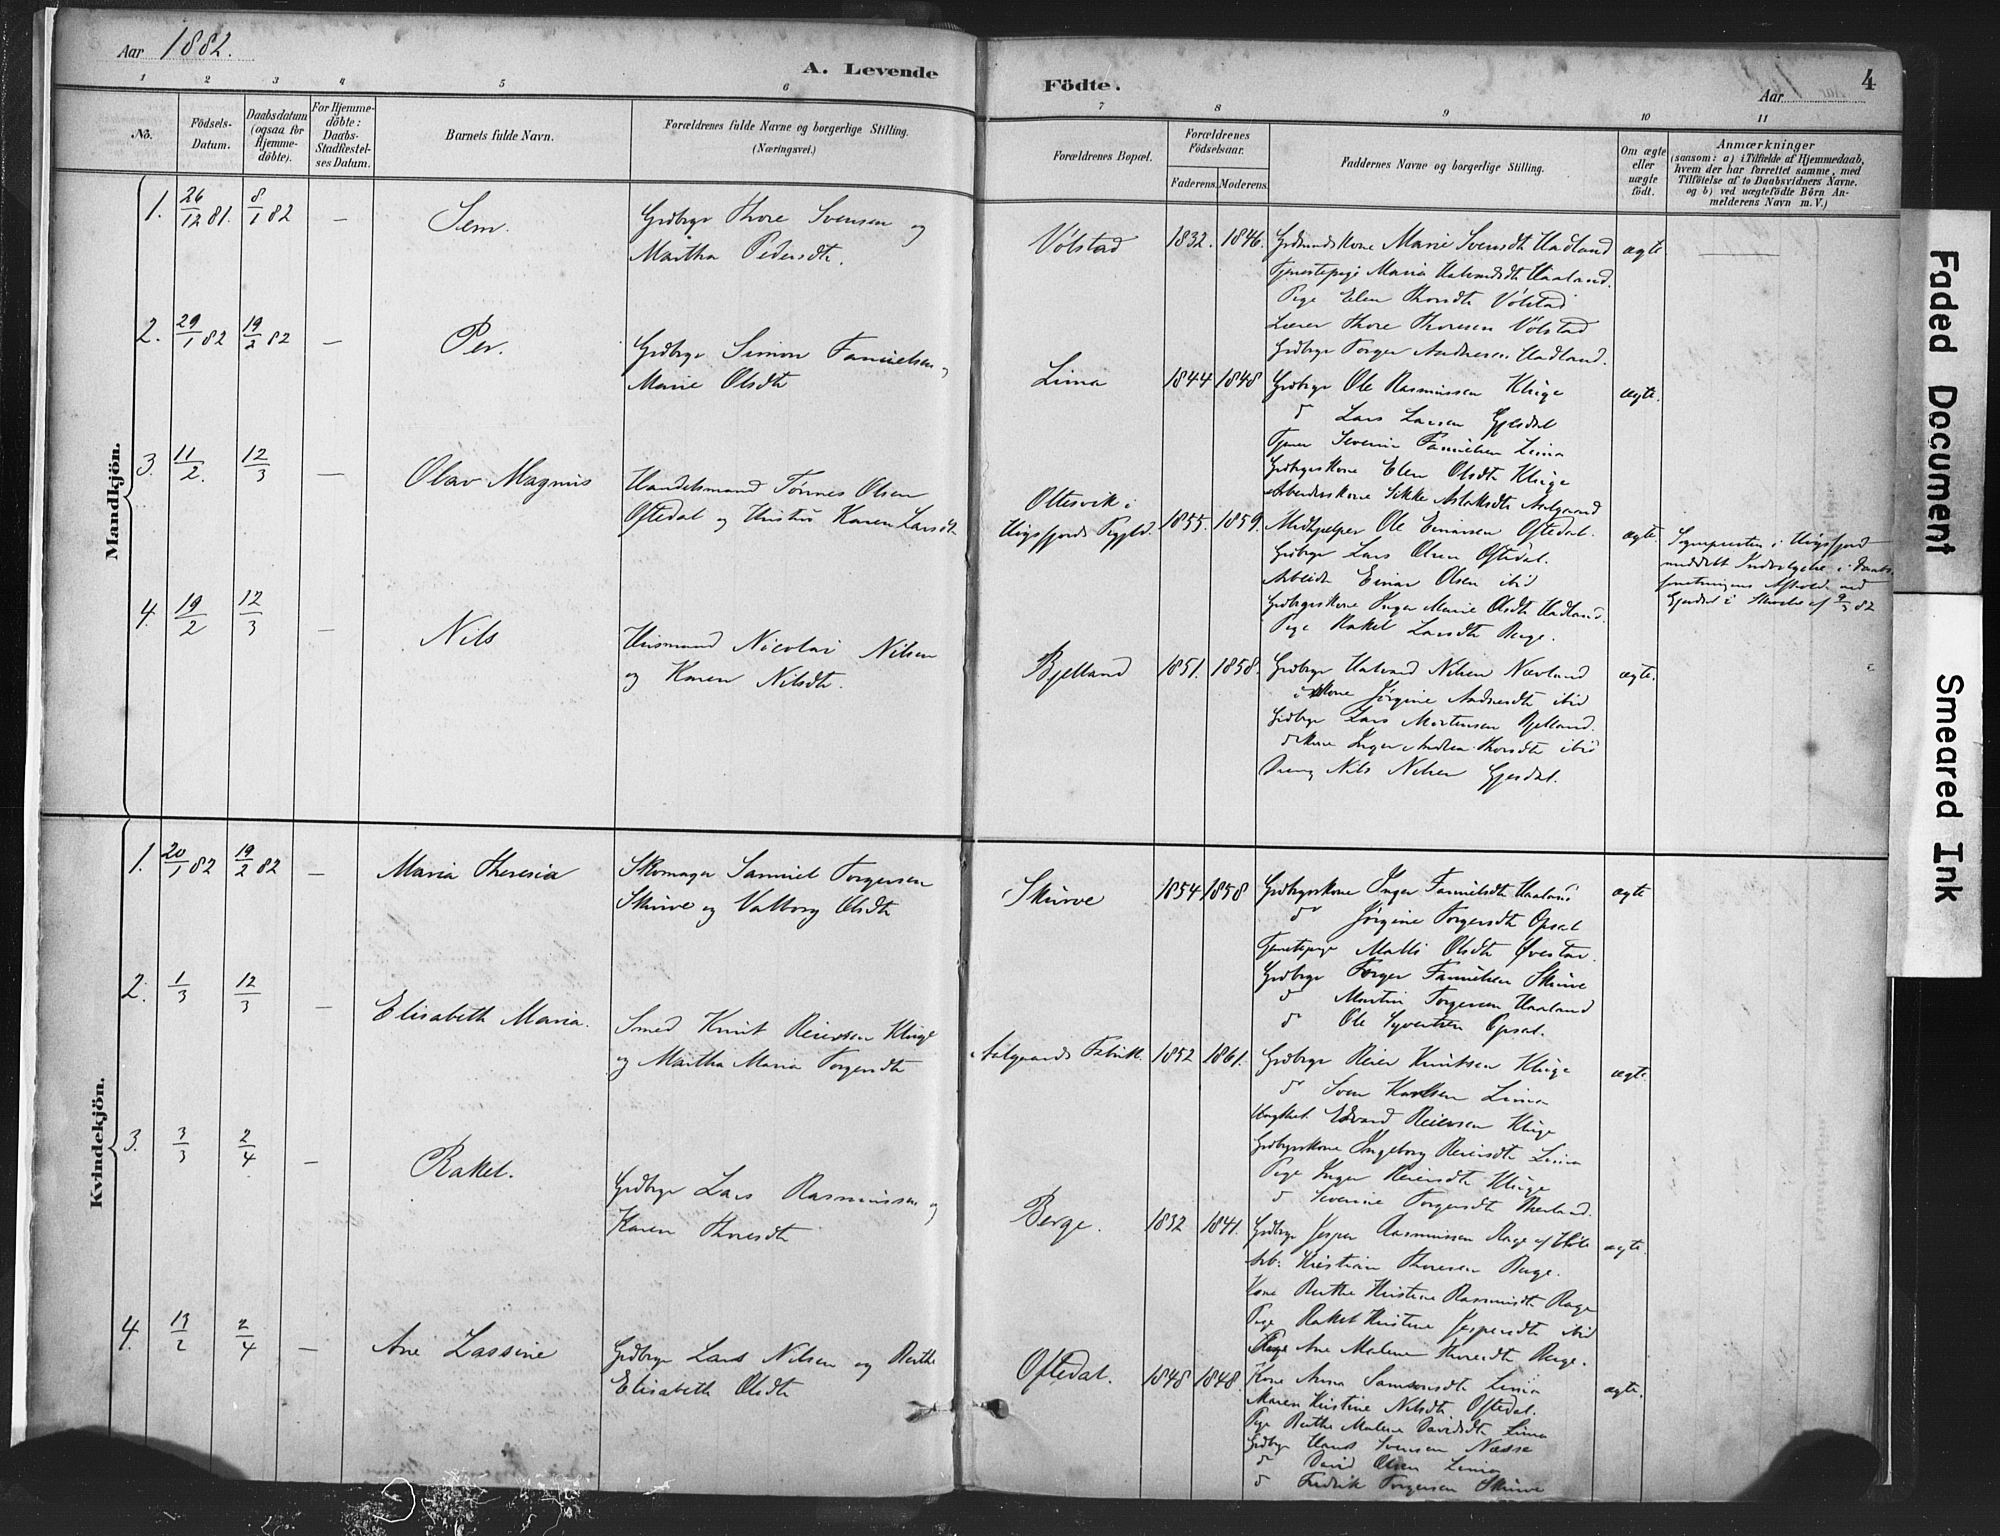 Aar 1882.
A. Levende Födte.
4
Aar
1 2 3 4 5 6 7 8 9 10 11
No.
Födsels-Datum.
Daabsdatum (ogsaa for Hjemme-döbte).
For Hjemme-döbte: Daabs-Stadfæstel-ses Datum.
Barnets fulde Navn.
Forældrenes fulde Navne og borgerlige Stilling.
(Næringsvei.)
Forældrenes Bopæl.
Forældrenes Födselsaar.
Faderens. Moderens.
Faddernes Navne og borgerlige Stilling.
Om ægte eller uægte födt.
Anmærkninger
(saasom: a) i Tilfælde af Hjemmedaab, hvem der har forrettet samme, med Tilföielse af to Daabsvidners Navne. og b) ved uægtefödte Börn An-melderens Navn m. V.)
Mandkjön.
1. 26/12 81. 8/1 82 – Sem. Grdbrgr Thore Svensen og
Martha Pedersdtr.
Vølstad 1832. 1846. Marie Svensdtr Hadland ægte
Tjenestepige Maria Haaland.
Pige Elen Thorsdtr Vølstad
Lærer Thore Thoresen Vølstad
Grdbrgr Torger Andresen Hadland.
2. 29/1 82 19/2 82 – Per. Grdbrgr Simon Tanielsen og
Marie Olsdtr
Lima 1844 1848 Grdbrgr Ole Rasmussen Kluge ægte.
d Lars Larsen Gjesdal
Tjener Severin Tanielsen Lima
Grdbrgerskone Elen Olsdtr Kluge
Arbeiderskone Sikke Aslaksdtr Aalgaard
3. 11/2. 12/3 – Olav Magnus Handelsmand Tønnes Olsen
Oftedal og Hustru Karen Larsdtr
Oltesvik i
Høgsfjords Prgjld. 1855. 1859. Medhjelper Ole Einarsen Oftedal. ægte.
Grdbrgr Lars Olsen Oftedal.
Arbeidr Einar Olsen ibid
Grdbrgerskone Inger Marie Olsdtr Hadland.
Pige Rakel Larsdtr Berge.
Sognepresten i Høgsfjord
meddelt
Gjesdal i Skrivelse af 9/3 82
4. 19/2 12/3 – Nils Husmand Nicolai Nilsen
og Karen Nilsdtr.
Bjelland 1851. 1858. Grdbrgr Halvard Nilsen Nævland ægte.
kone Jørgine Andersdtr ibid
Grdbrgr Lars Mortensen Bjelland.
d kone Inger Andrea Thorsdtr ibid
Dreng Nils Nilsen Gjesdal.
Kvindekjön.
1. 20/1 82 19/2 82 – Maria Theresia Skomager Samuel Torgersen
Skurve og Valborg Olsdtr
Skurve 1854 1858 Grdbrgrskone Inger Tanielsdtr Haaland ægte
d Jørgine Torgersdtr Opsal
Tjenestepige Malli Olsdtr Øvestad.
Grdbrgr Torger Tanielsen Skurve
d Martin Torgersen Haaland
d Ole Syvertsen Opsal.
2. 1/3 12/3 – Elisabeth Maria. Smed Knut Reiersen Kluge
og Martha Maria Torgersdtr
Aalgaards Fabrik. 1852 1861. Grdbrgr Reier Knutsen Kluge ægte.
d Sven Karlsen Lima
Ungkarl Edvard Reiersen Kluge
Grdbrgrskone Ingeborg Reiersdtr Lima
Pige Inger Reiersdtr Kluge
d Severine Torgersdtr
3. 3/3 2/4 – Rakel. Grdbrgr Lars Rasmussen og
Karen Thoresdtr
Berge. 1832 1841. Grdbrgr Jesper Rasmussen Rage af Høle ægte.
Arb: Kristian Thoresen Berge.
Kone Berthe Kristine Rasmusdtr Rage
Pige Rakel Kristine Jespersdtr ibid
Pige Ane Malene Thoresdtr Berge.
4. 13/2 2/4 – Ane Lassine Grdbrgr Lars Nilsen og Berthe
Elisabeth Olsdtr
Oftedal. 1848 1848. Kone Anna Samsonsdtr Lima ægte.
Maren Kristine Nilsdtr Oftedal.
Pige Berthe Malene Davidsdtr Lima
Grdbrgr Hans Svensen Næsse
d David Olsen Lima
d Fredrik Torgersen Skurve
Faded Document
Smeared Ink